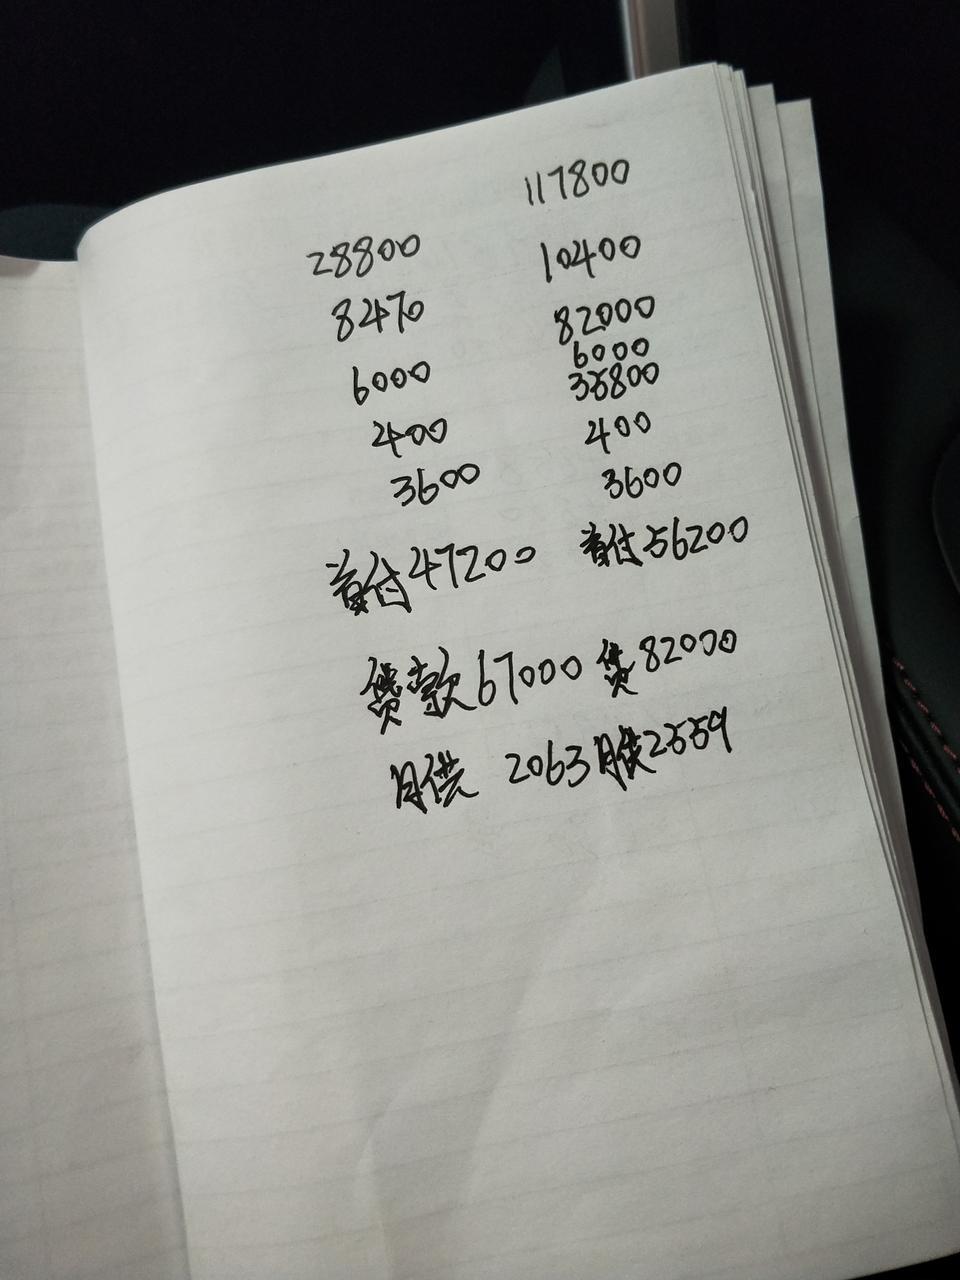 117800
28800 10400
8470 82000
6000 6000
35800
400 400
3600 3600
首付47200 首付56200
贷款67000 贷82000
月供 2063 月供2559